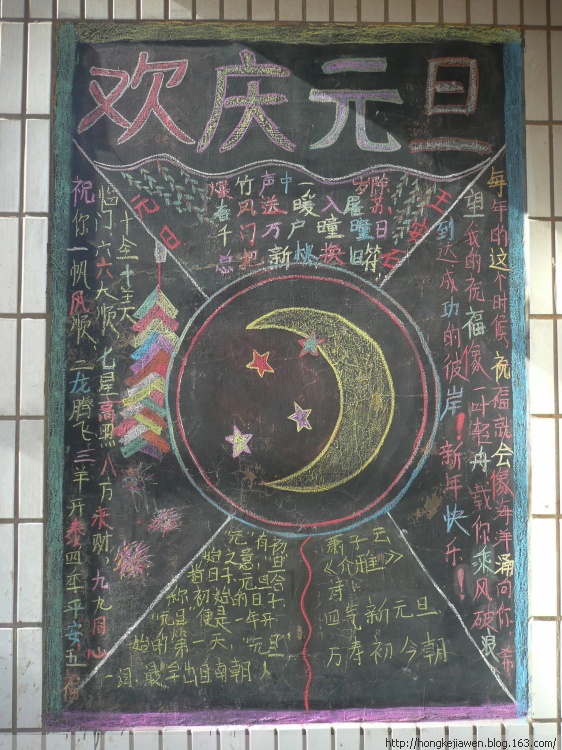 欢庆元旦
元日
王安石
爆竹声中一岁除、
春风送暖入屠苏
千门万户瞳瞳日
总把新桃换旧符
祝你一帆风顺,二龙腾飞,三羊开泰,四季平安,五福
临门,六六大顺,七星高照,八方来财,九九同心
十全十美
每年的这个时候,祝福就会像海洋涌向你,希
望我的祝福像一叶轻舟载你乘风破浪,
到达成功的彼岸!新年快乐!
始的第一天,“元旦”
一词,最早出自南朝人
萧子云
《介雅》
诗
四气新元旦
万寿初今朝
http://hongkejiawen.blog.163.com/